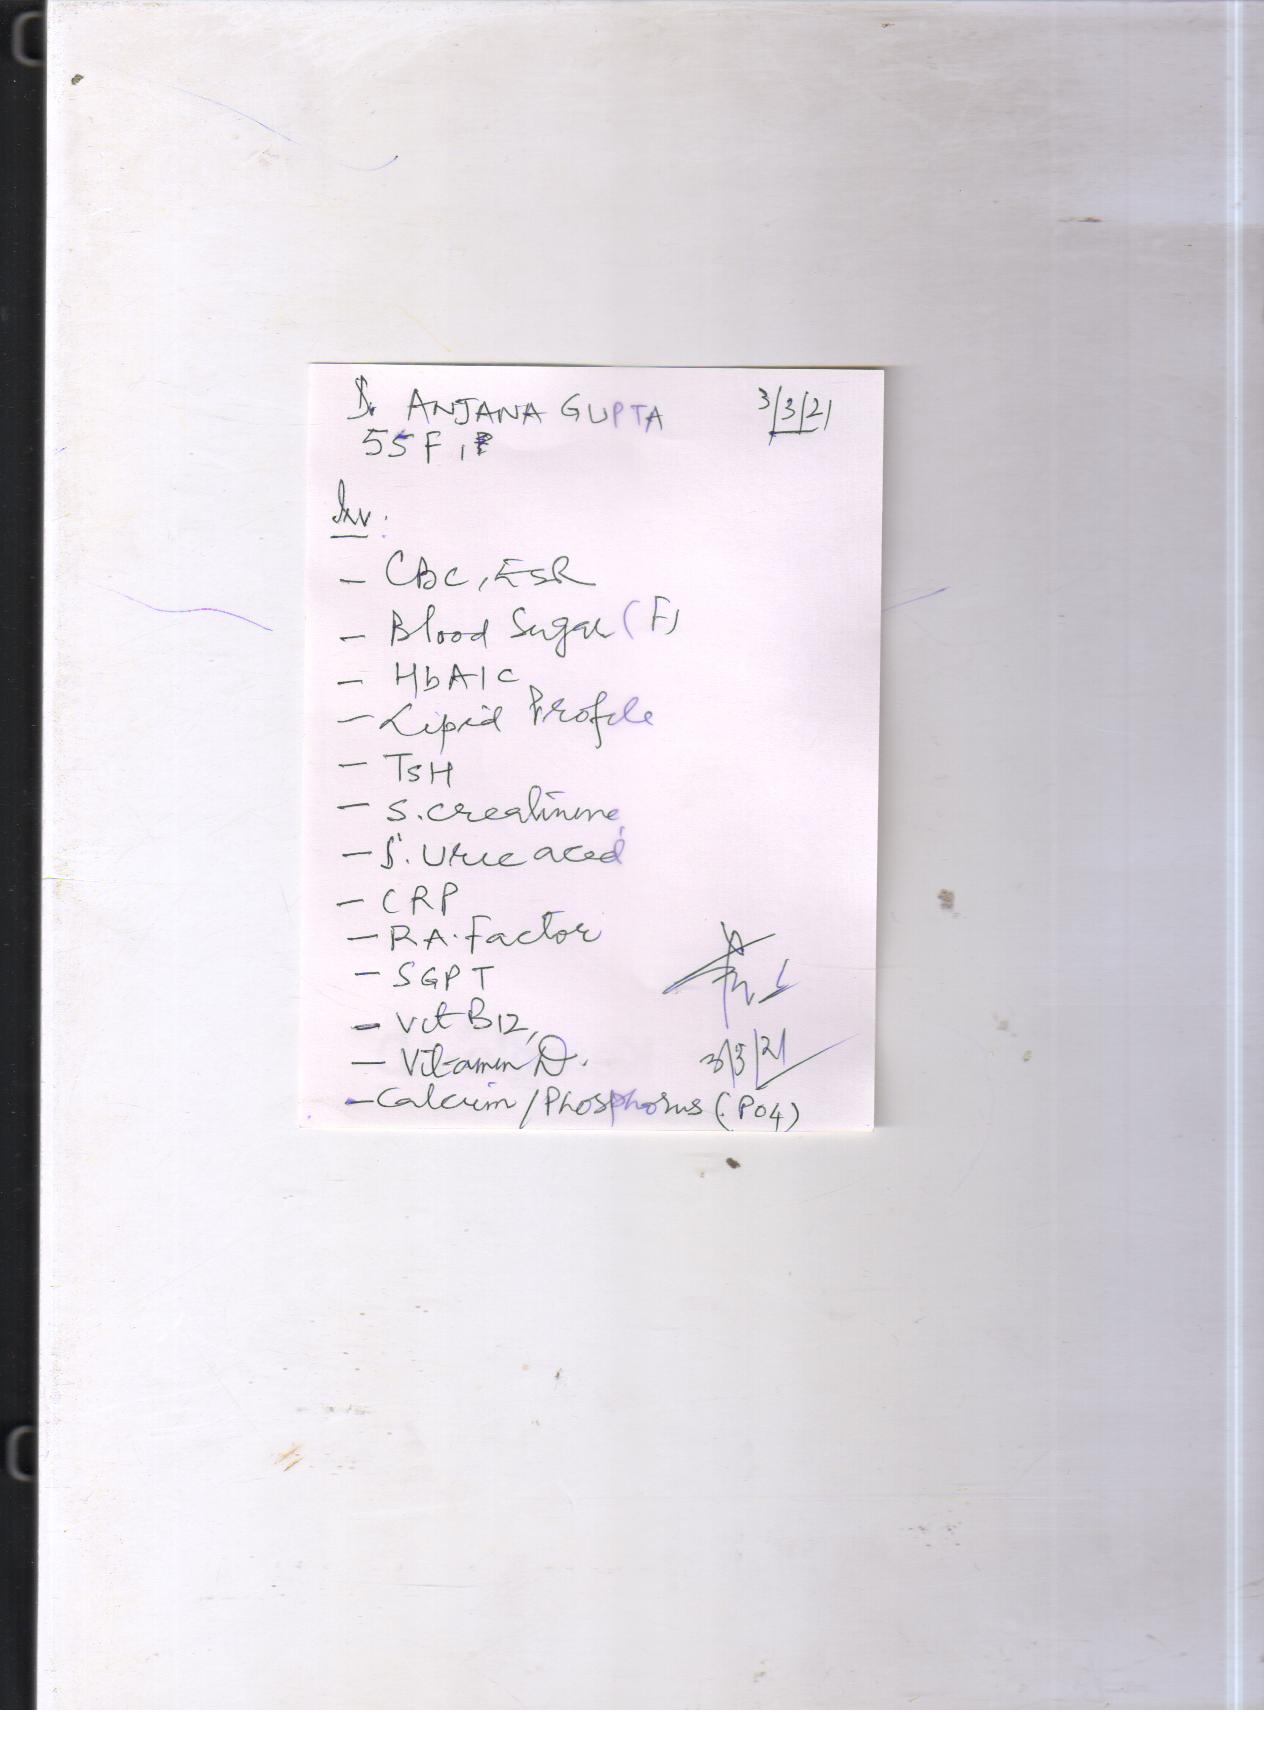 Dr. ANJANA GUPTA 3/3/21
55 F
Inv.
- CBC, ESR
- Blood Sugar (F)
- HbA1c
- Lipid Profile
- TSH
- S. creatinine
- S. Uric acid
- CRP
- RA. factor
- SGPT
- Vit B12,
- Vitamin D.
3/3/21
- Calcium / Phosphorus (PO4)